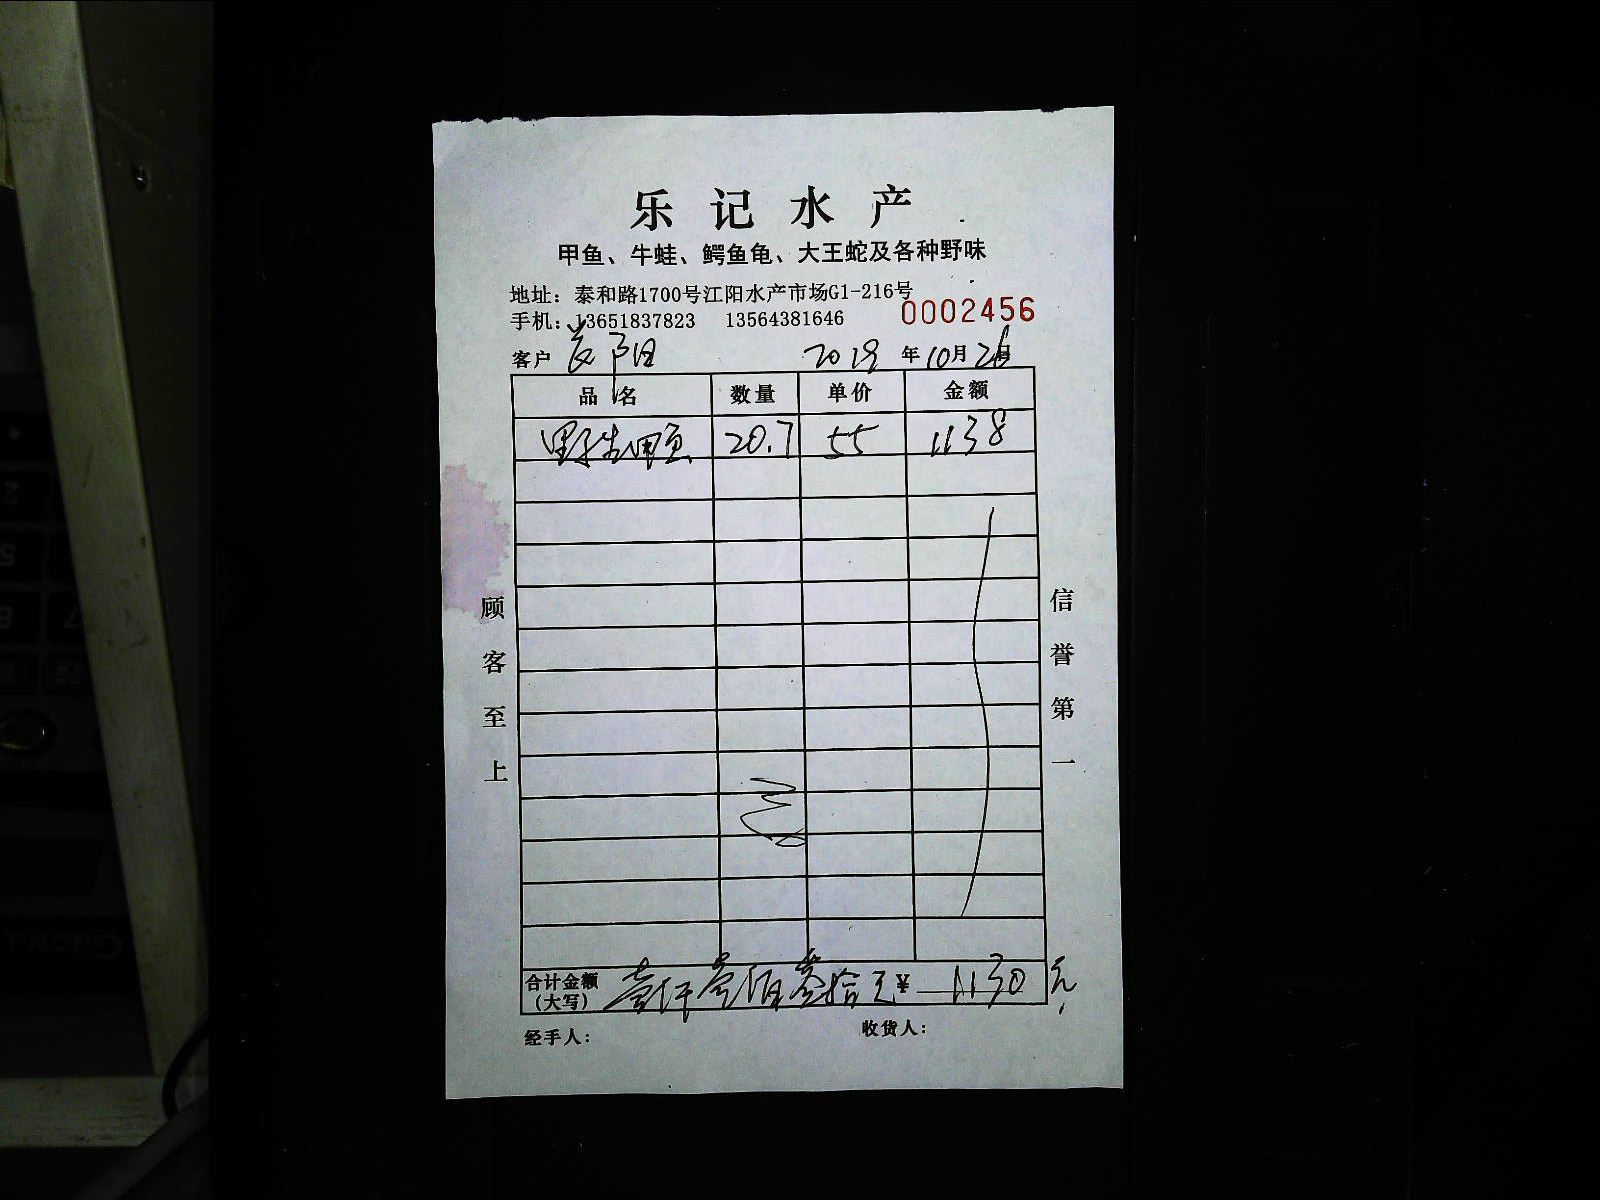 乐记水产
甲鱼、牛蛙、鳄鱼龟、大王蛇及各种野味
地址：泰和路1700号江阳水产市场G1-216号
手机：13651837823 13564381646
0002456
客户 阳 2019 年 10 月 26 日
品名 数量 单价 金额
野生甲鱼 20.7 55 1138
顾客至上
信誉第一
合计金额 壹仟壹佰叁拾元 ¥ 1130 元
（大写）
经手人： 收货人：